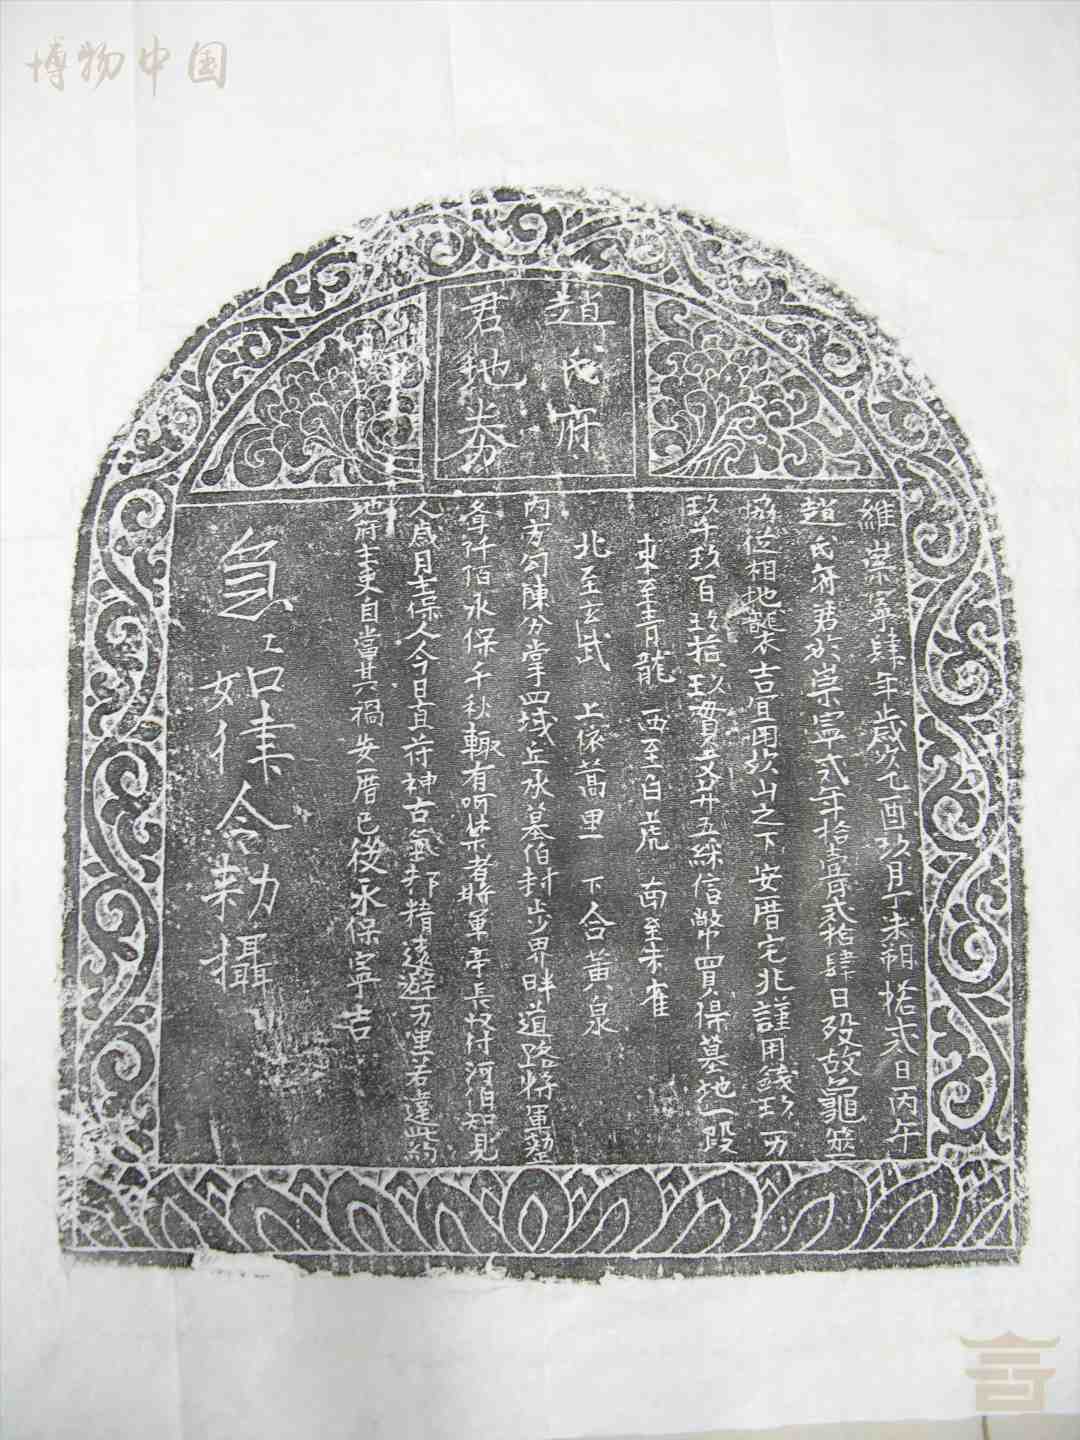 博物中国
趙氏府
君地券
維崇寧肆年歲次乙酉玖月丁未朔拾弍日丙午
趙氏府君於崇寧弍年拾壹月弍拾肆日歿故龜筮
協從相地襲吉宜用此山之下安厝宅兆謹用錢玖万
玖千玖百玖拾玖貫文并五綵信幣買得墓地一段
東至青龍 西至白虎 南至朱雀
北至玄武 上依蒿里 下合黃泉
內方勾陳分掌四域丘承墓伯封步界畔道路將軍整
阡陌永保千秋輙有呵禁者將軍亭長付河伯知見
人歲月主保人今日直符神古氣邪精遠避万里若違此約
地府主吏自當其禍安厝已後永保寧吉
急々如律令勑攝